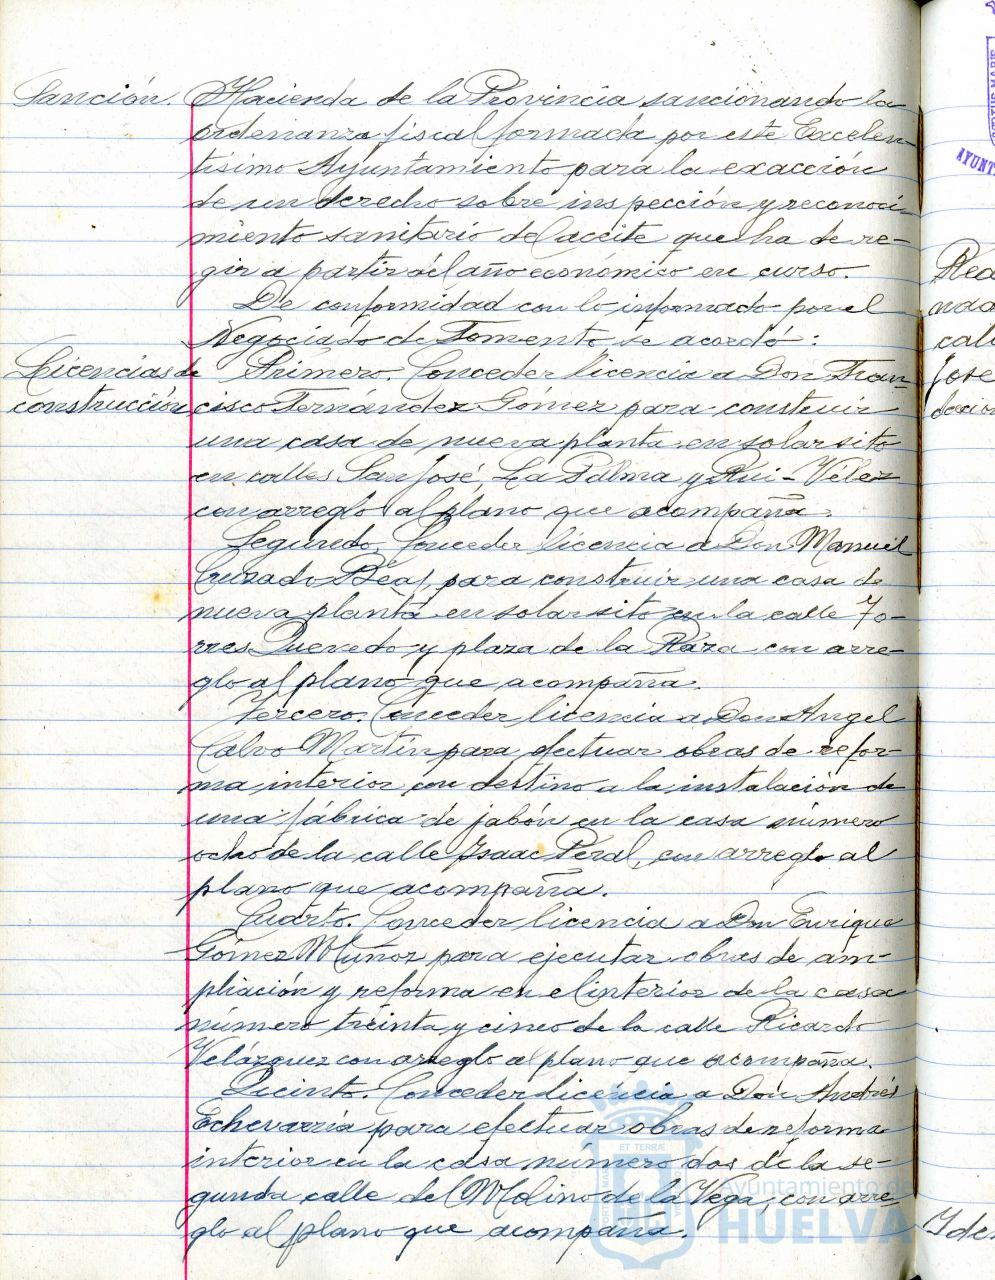 Sanción. Hacienda de la Provincia sancionando la
ordenanza fiscal formada por este Excelen-
tísimo Ayuntamiento para la exacción
de un derecho sobre inspección y reconoci-
miento sanitario del aceite que ha de re-
gir a partir del año económico en curso.
De conformidad con lo informado por el
Negociado de Fomento se acordó:
Licencias de Primero. Conceder licencia a Don Fran-
construcción cisco Fernández Gómez para construir
una casa de nueva planta en solar sito
en calles San José, La Palma y Rui-Vélez
con arreglo al plano que acompaña.
Segundo. Conceder licencia a Don Manuel
Cruzado Béas, para construir una casa de
nueva planta en solar sito en la calle To-
rres Quevedo y plaza de la Raza con arre-
glo al plano que acompaña.
Tercero. Conceder licencia a Don Angel
Calvo Martín para efectuar obras de refor-
ma interior con destino a la instalación de
una fábrica de jabón en la casa número
ocho de la calle Isaac Peral, con arreglo al
plano que acompaña.
Cuarto. Conceder licencia a Don Enrique
Gómez Muñoz para ejecutar obras de am-
pliación y reforma en el interior de la casa
número treinta y cinco de la calle Ricardo
Velázquez con arreglo al plano que acompaña.
Quinto. Conceder licencia a Don Andrés
Echevarría para efectuar obras de reforma
interior en la casa número dos de la se-
gunda calle del Molino de la Vega, con arre-
glo al plano que acompaña.
ET TERRÆ
Ayuntamiento de
HUELVA
AYUNT
Rea
nda
cal
José